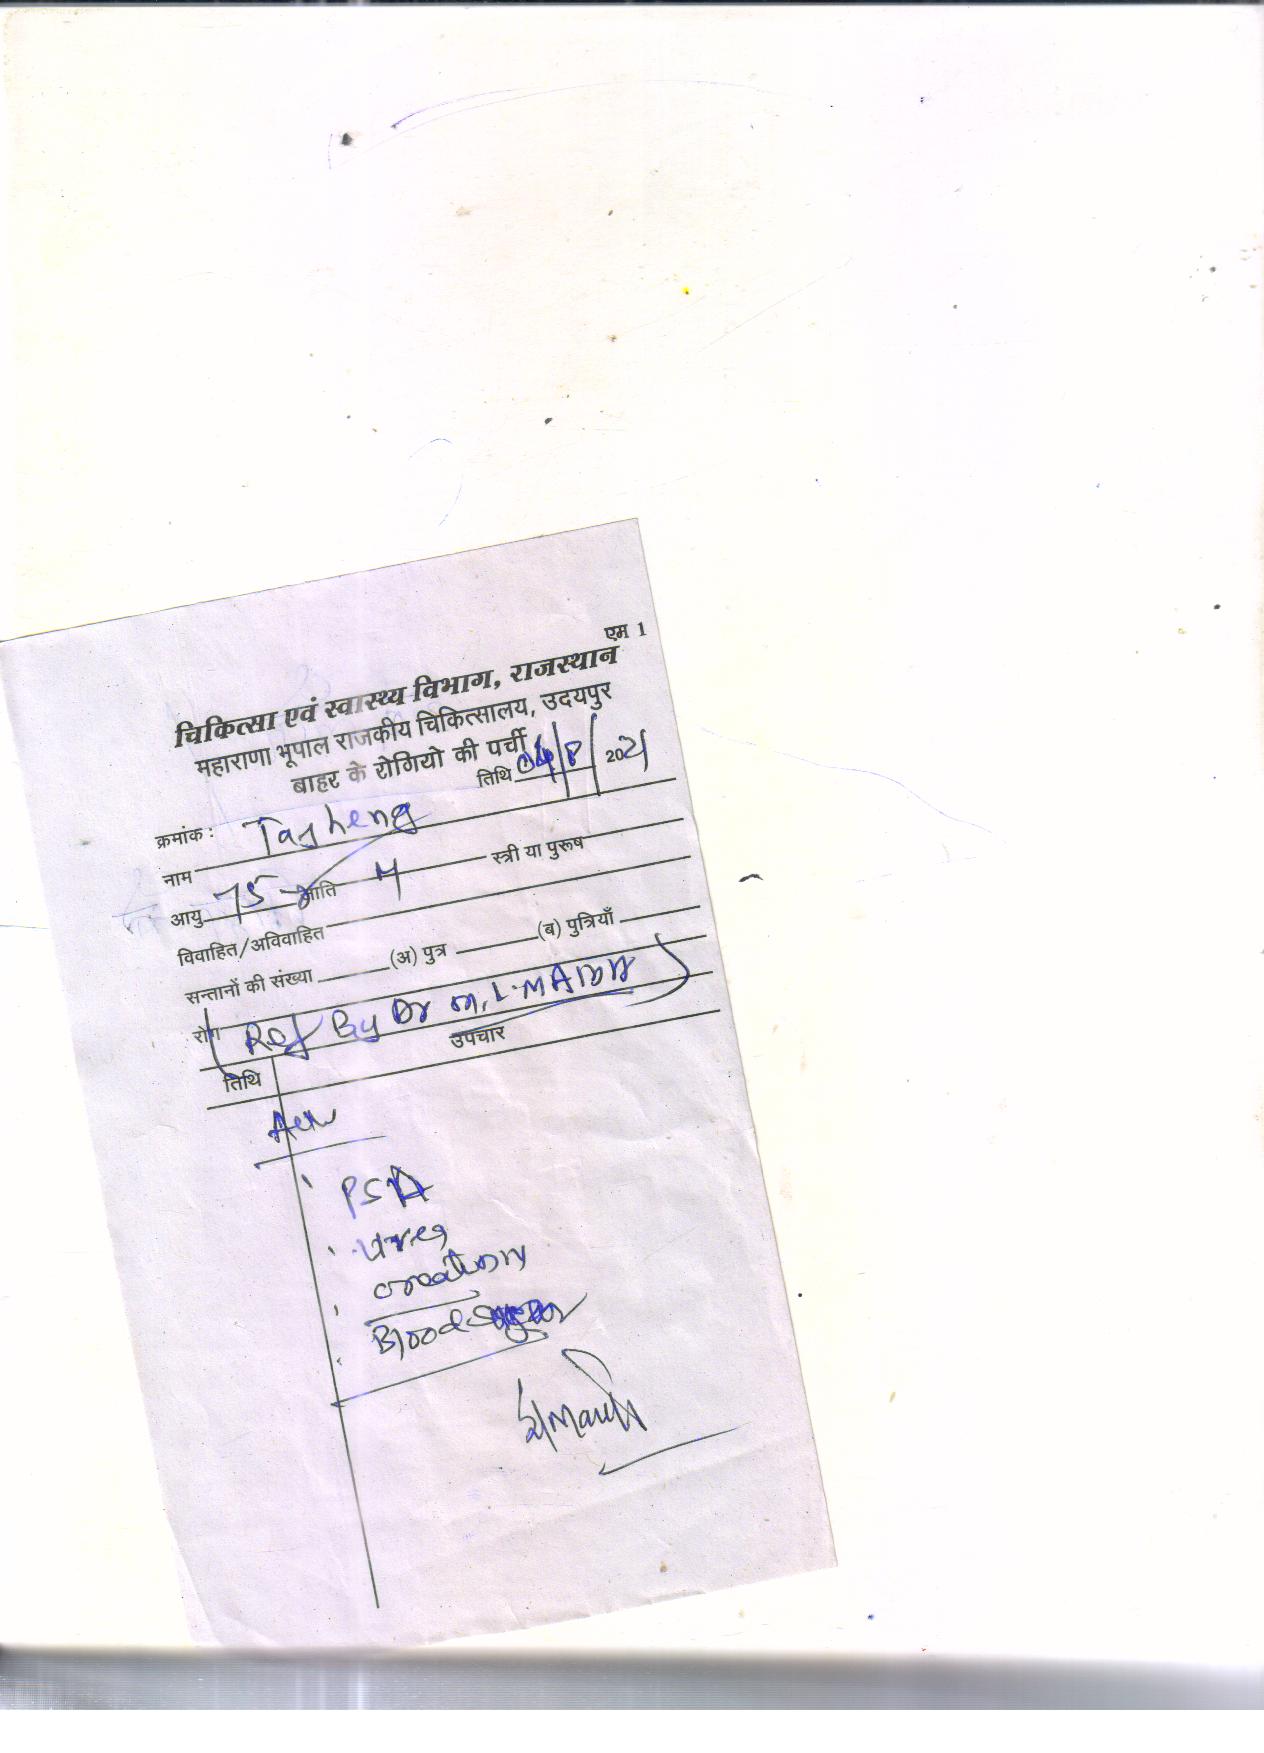 एम 1
चिकित्सा एवं स्वास्थ्य विभाग, राजस्थान
महाराणा भूपाल राजकीय चिकित्सालय, उदयपुर
बाहर के रोगियो की पर्ची
तिथि 04/8/2021
क्रमांक :
नाम
आयु 75 जाति M स्त्री या पुरूष
विवाहित/अविवाहित
सन्तानों की संख्या (अ) पुत्र (ब) पुत्रियाँ
रोग Ref By Dr M.L.
तिथि उपचार
PSA
Urea
Blood Sugar